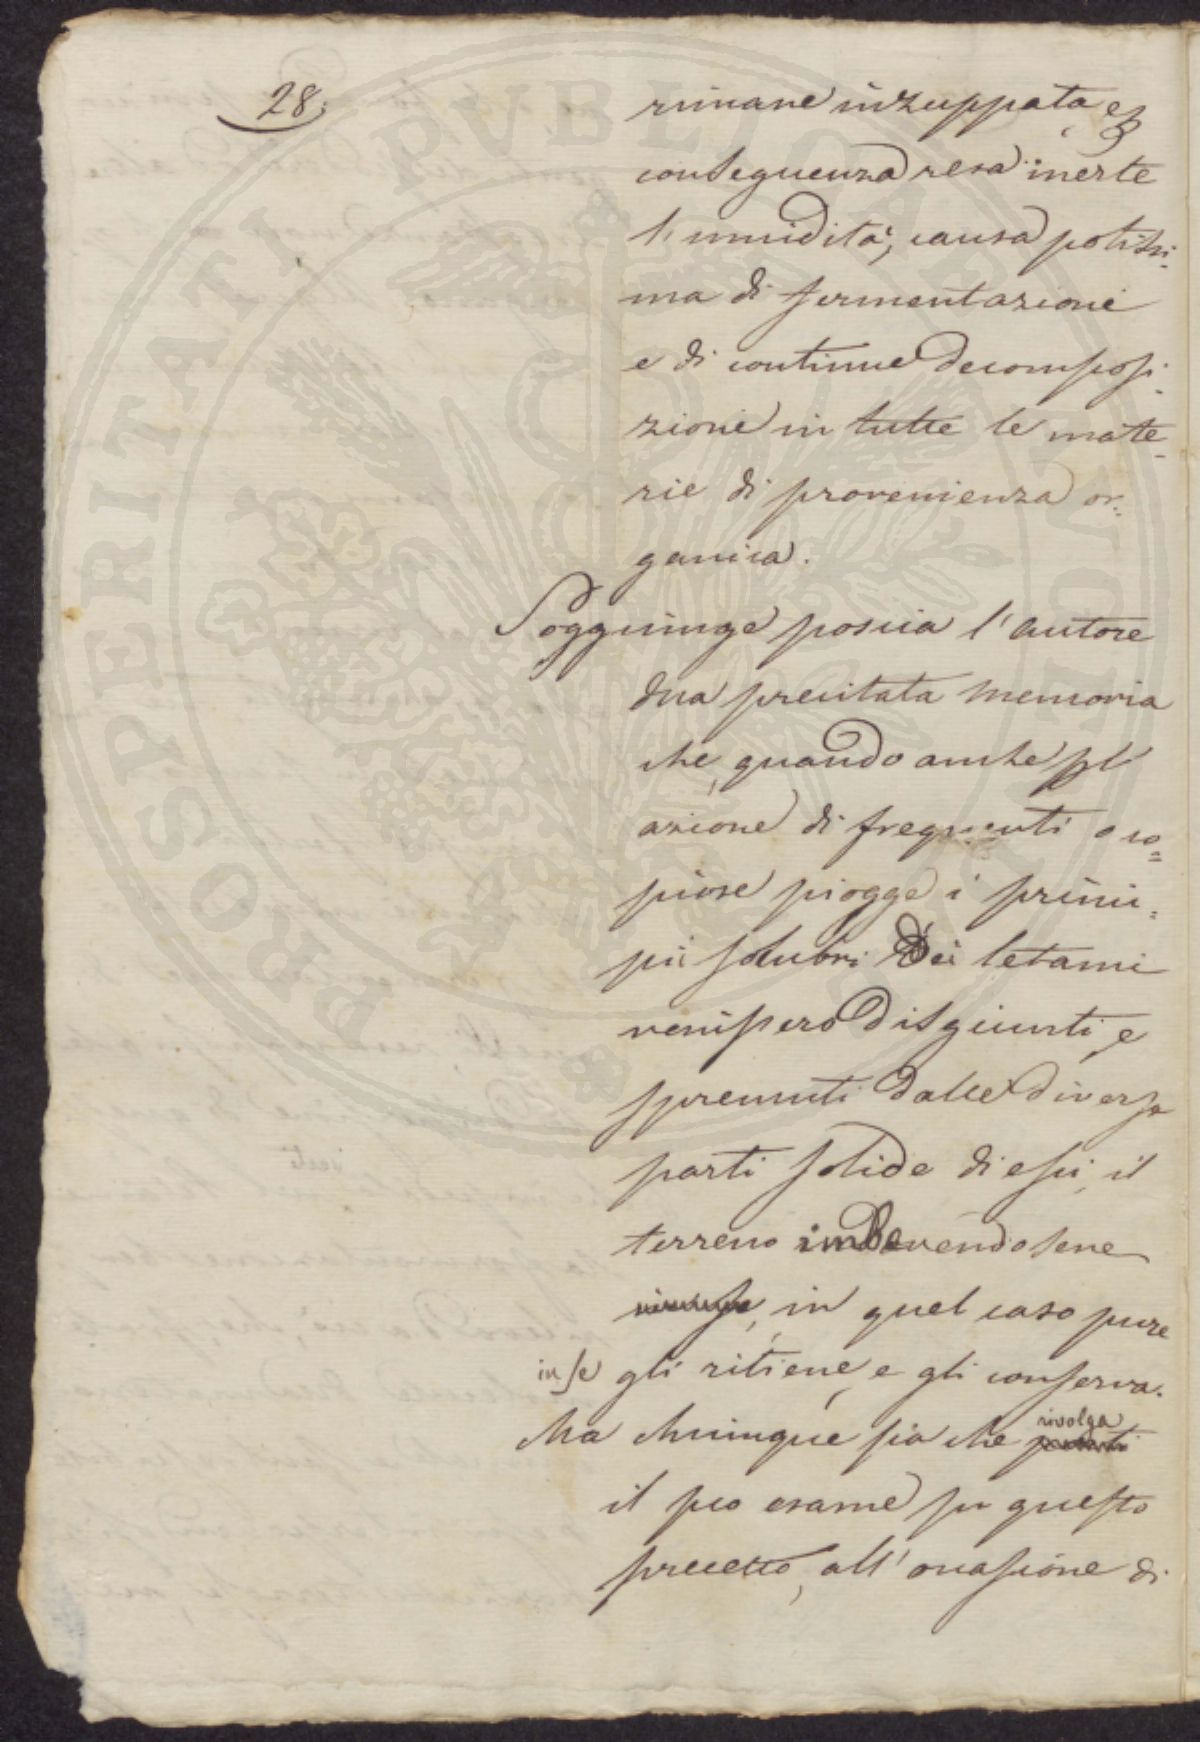 28.
rimane inzuppata, e p
conseguenza resa inerte
l'umidità, causa potissi-
ma di fermentazione
e di continue decomposi-
zione in tutte le mate-
rie di provenienza or-
ganica.
Soggiunge poscia l'autore
dua precitata memoria
che, quando anche pl'
azione di frequenti o co=
piose piogge i princi=
pii solubri dei letami
venissero disgiunti, e
spremuti dalle diverse
parti solide di essi, il
terreno imbevendosene
in quel caso pure
in se gli ritiene, e gli conserva.
rivolga
Ma chiunque sia che
il suo esame su questo
precetto, all'occasione di
PROSPERITATI PVBLICAE AVGENDAE